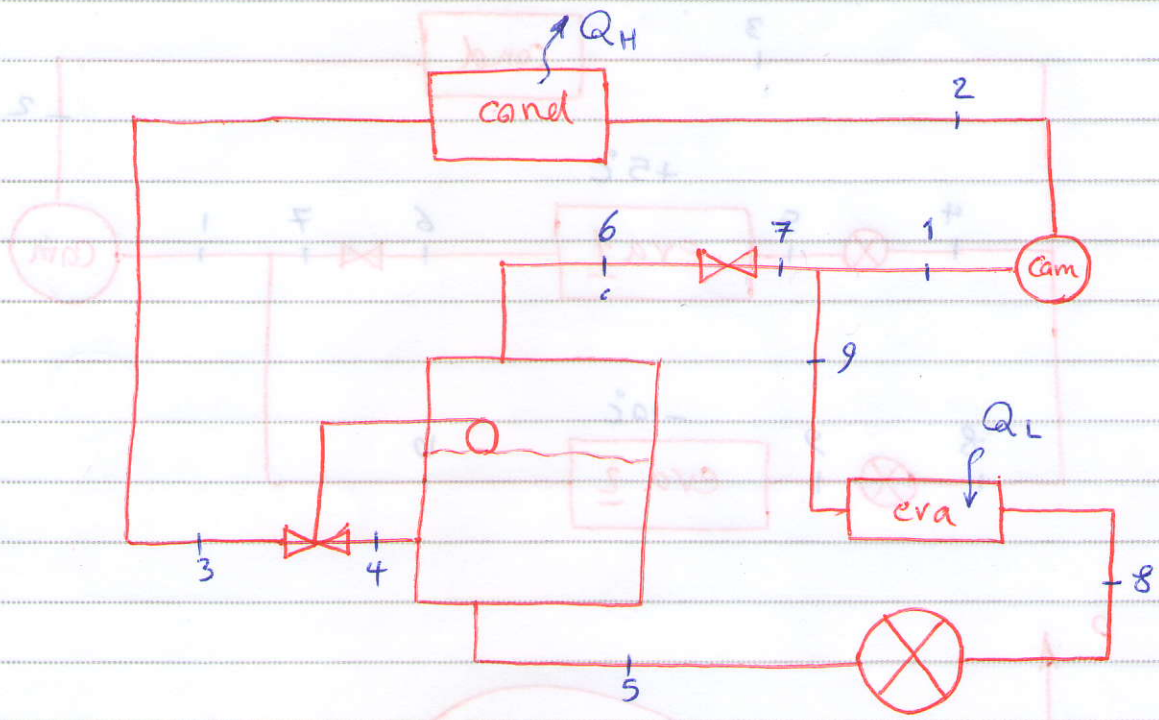 Q_H
cond
2
6
7
1
com
9
Q_L
eva
3
4
8
5